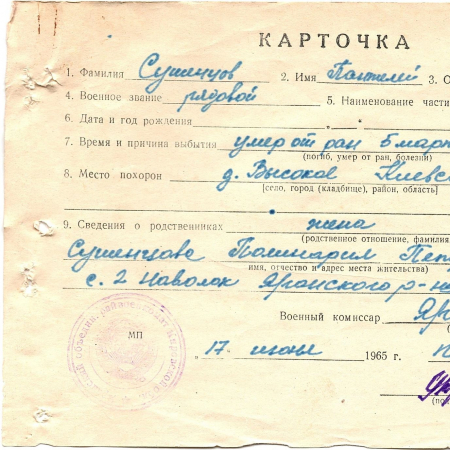 КАРТОЧКА
1. Фамилия Сушенцов 2. Имя Пантелей 3. О
4. Военное звание рядовой 5. Наименование части
6. Дата и год рождения
7. Время и причина выбытия умер от ран 5 мар
(погиб, умер от ран, болезни)
8. Место похорон д. Высокое Киевс
[село, город (кладбище), район, область]
9. Сведения о родственниках жена
(родственное отношение, фамилия
Сушенцова Полинария Пет
имя, отчество и адрес места жительства)
с. 2 Наволок Яранского р-н
Военный комиссар Яр
МП
„17 июня 1965 г.
(по